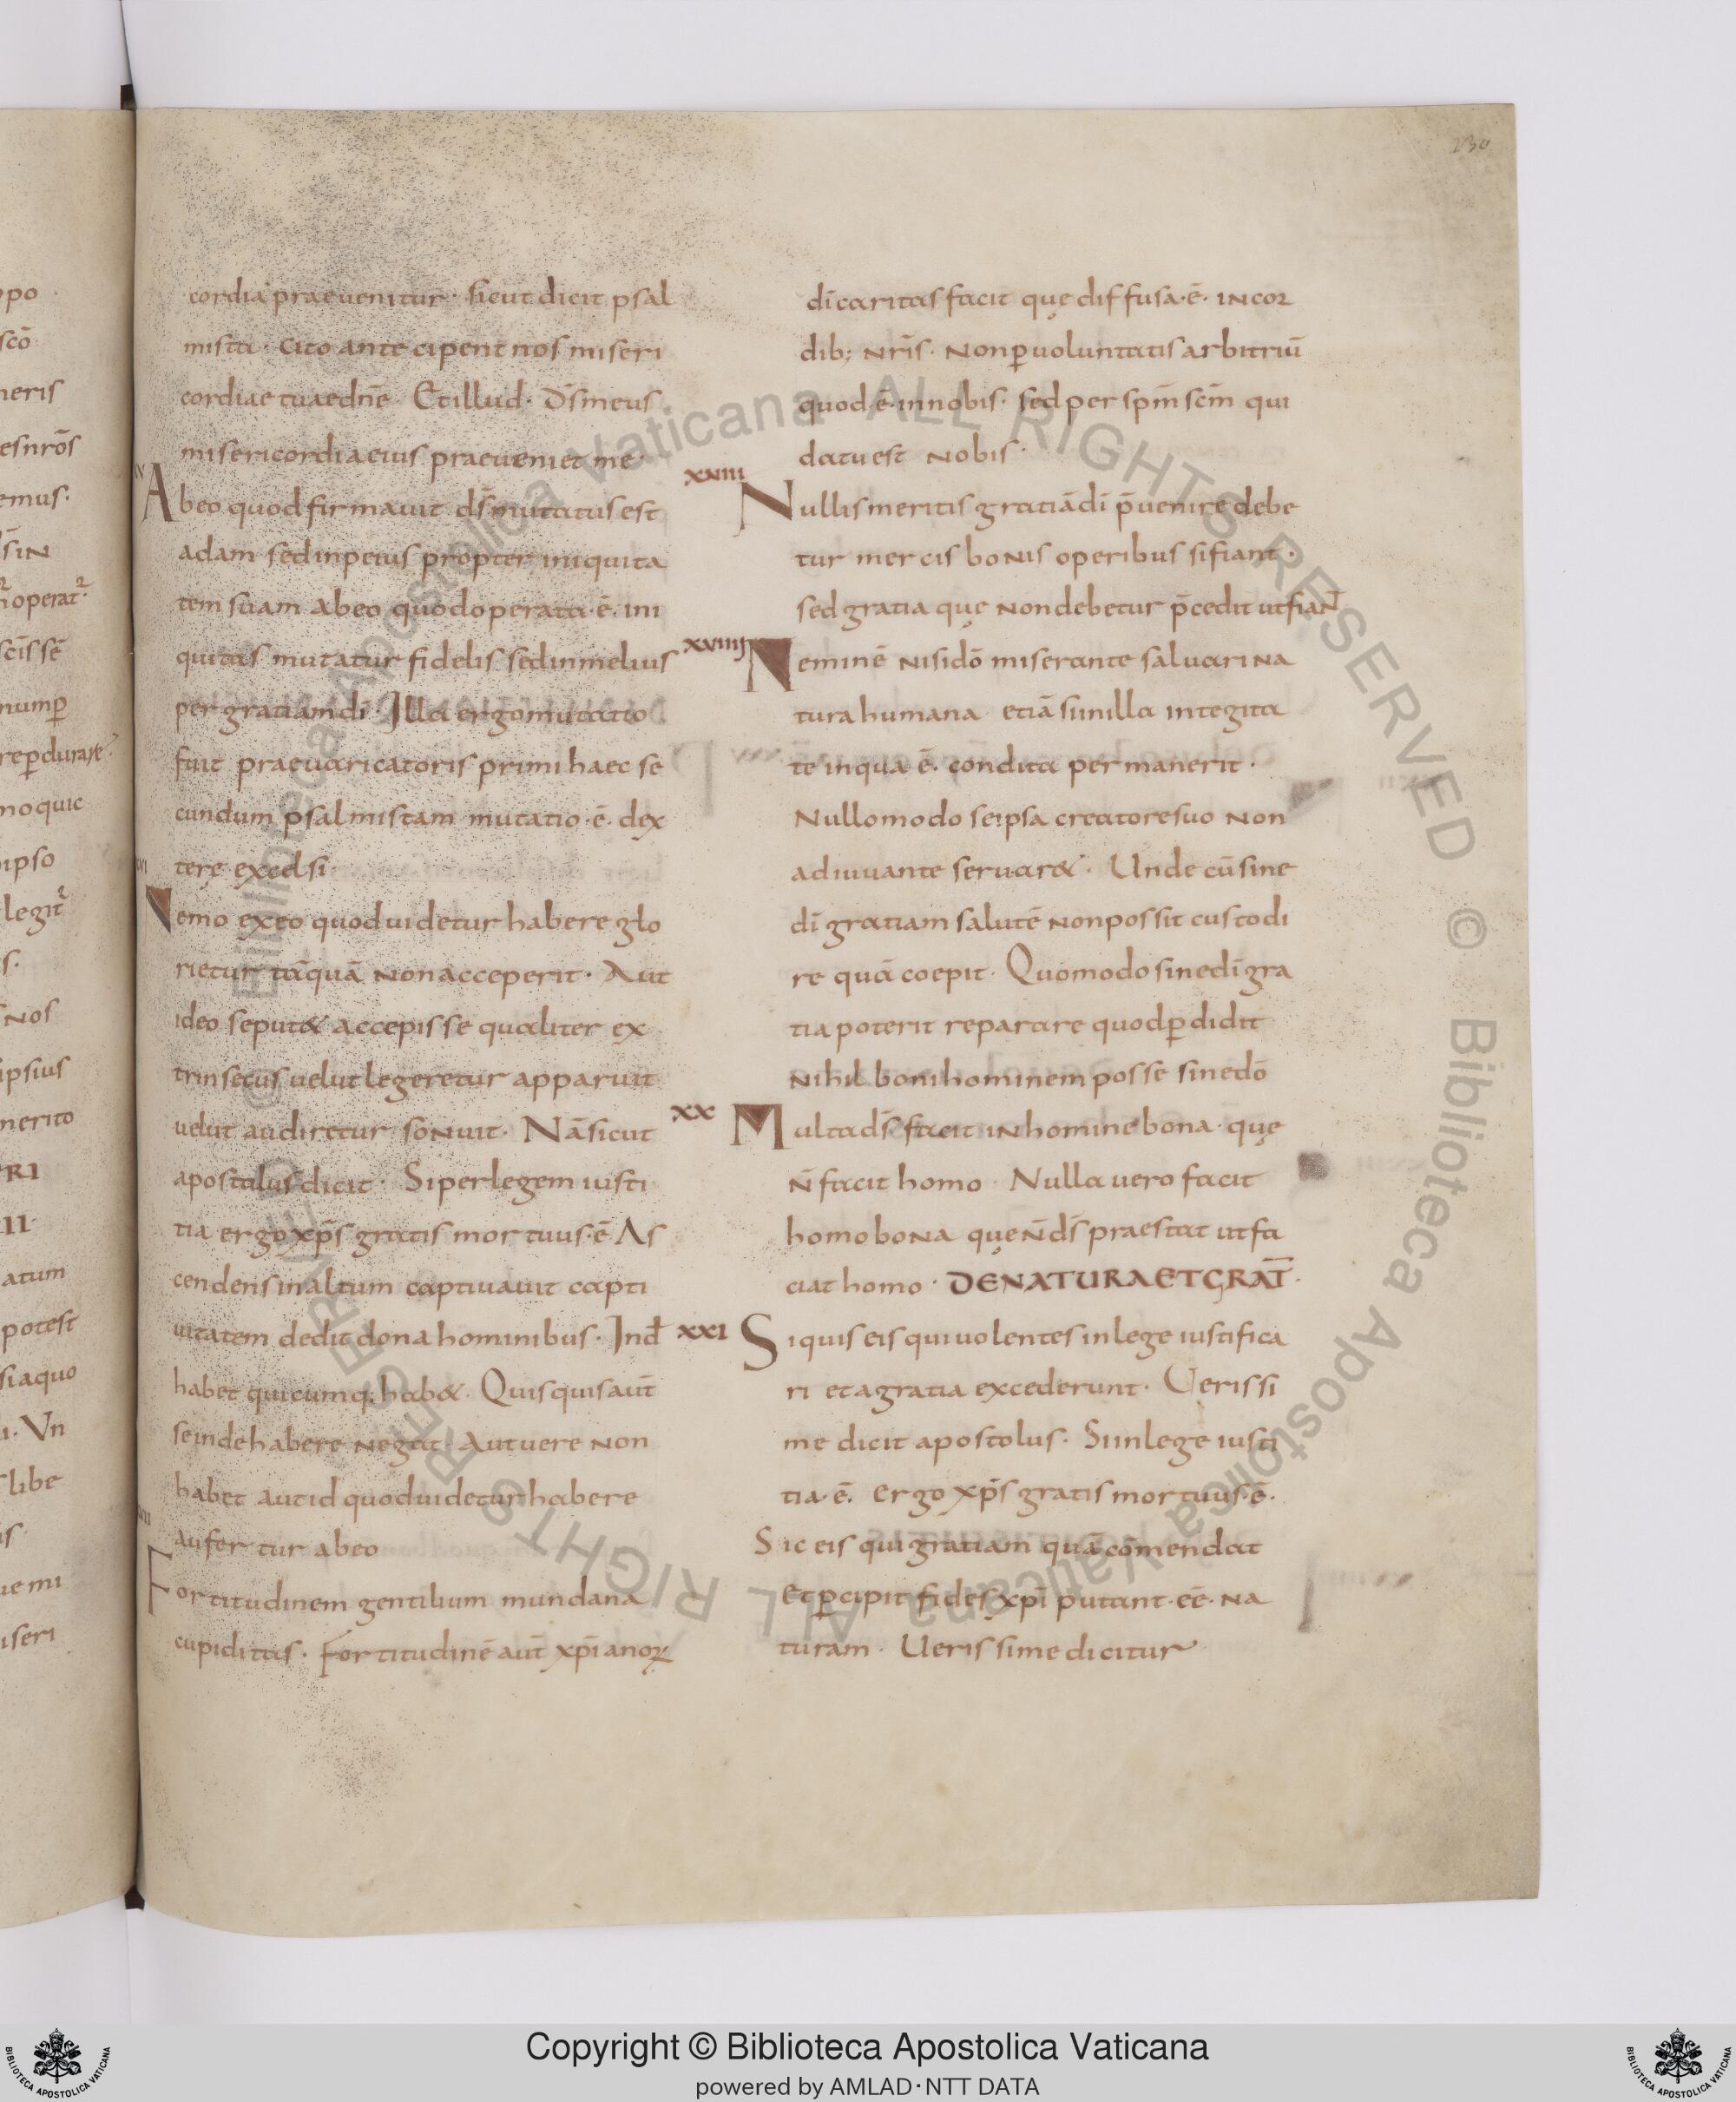 230
po
scō
neris
esnrōs
emus.
s̄ in
operat
scīs sē
num ꝑ
reꝑdurare
mo quic
ipso
legit
s.
nos
ipsius
merito
RI
II
atum
potest
si aquo
Vn
libe
is
ue mi
iseri
cordia praeuenitur· sicut dicit psal
mista· cito ante cipent nos miseri
cordiae tuae dn̄e· Et illud· d̄s meus
misericordia eius praeueniet me·
Abeo quod firmauit d̄s mutatus est
adam sed inpeius propter iniquita
tem suam abeo quod operata·ē· ini
quitas mutatur fidelis sed inmelius
per gratiam dī· Illa ergo mutatio
fuit praeuaricatoris primi haec se
cundum psalmistam mutatio·ē· dex
terę excelsi·
Nemo exeo quod uidetur habere glo
rietur tāquā non acceperit· Aut
ideo se put& accepisse qualiter ex
trinsecus uelut legeretur apparuit
uelut audiretur sonuit· Nā sicut
apostolus dicit· Si per legem iusti
tia ergo xp̄s gratis mortuus·ē As
cendens inaltum captiuauit capti
uitatem dedit dona hominibus· Ind̄
habet quicumq; hab&· Quisquis aūt
se inde habere negat· Aut uere non
habet aut id quod uidetur habere
aufer tur abeo
Fortitudinem gentilium mundana
cupiditas· Fortitudinē aūt xp̄ianoꝝ
dī caritas facit quę diffusa·ē· incor
dib; nrīs· Non ꝑ uoluntatis arbitriū
quod·ē·innobis· sed per sp̄m sc̄m qui
datu est nobis·
xviii
Nullis meritis gratiā dī p̄uenire debe
tur mercis bonis operibus si fiant·
sed gratia quę non debetur p̄cedit ut fian̄
xviiij
Neminē nisi dō miserante saluari na
tura humana etiā si inilla integita
te inqua ē· condita permanerit·
Nullo modo se ipsa creatore suo non
adiuuante seruar&· Unde cū sine
dī gratiam salutē non possit custodi
re quā coepit· Quomodo sine dī gra
tia poterit reparare quod ꝑdidit
nihil boni hominem posse sine dō
xx
Multa d̄s facit in homine bona· quę
n̄ facit homo· Nulla uero facit
homo bona quę n̄ d̄s praestat ut fa
ciat homo· DE NATURA ET GRAT̄·
xxi
Si quis eis qui uolentes in lege iustifica
ri et agratia excederunt· Uerissi
me dicit apostolus· Si inlege iusti
tia·ē· ergo xp̄s gratis mortuus·ē·
Sic eis qui gratiam quā cōmendat
et ꝑcipit fides xp̄i putant·eē·na
turam· Uerissime dicitur
© Biblioteca Apostolica Vaticana ALL RIGHTS RESERVED © Biblioteca Apostolica Vaticana ALL RIGHTS RESERVED
Copyright © Biblioteca Apostolica Vaticana
powered by AMLAD·NTT DATA
BIBLIOTECA APOSTOLICA VATICANA
BIBLIOTECA APOSTOLICA VATICANA